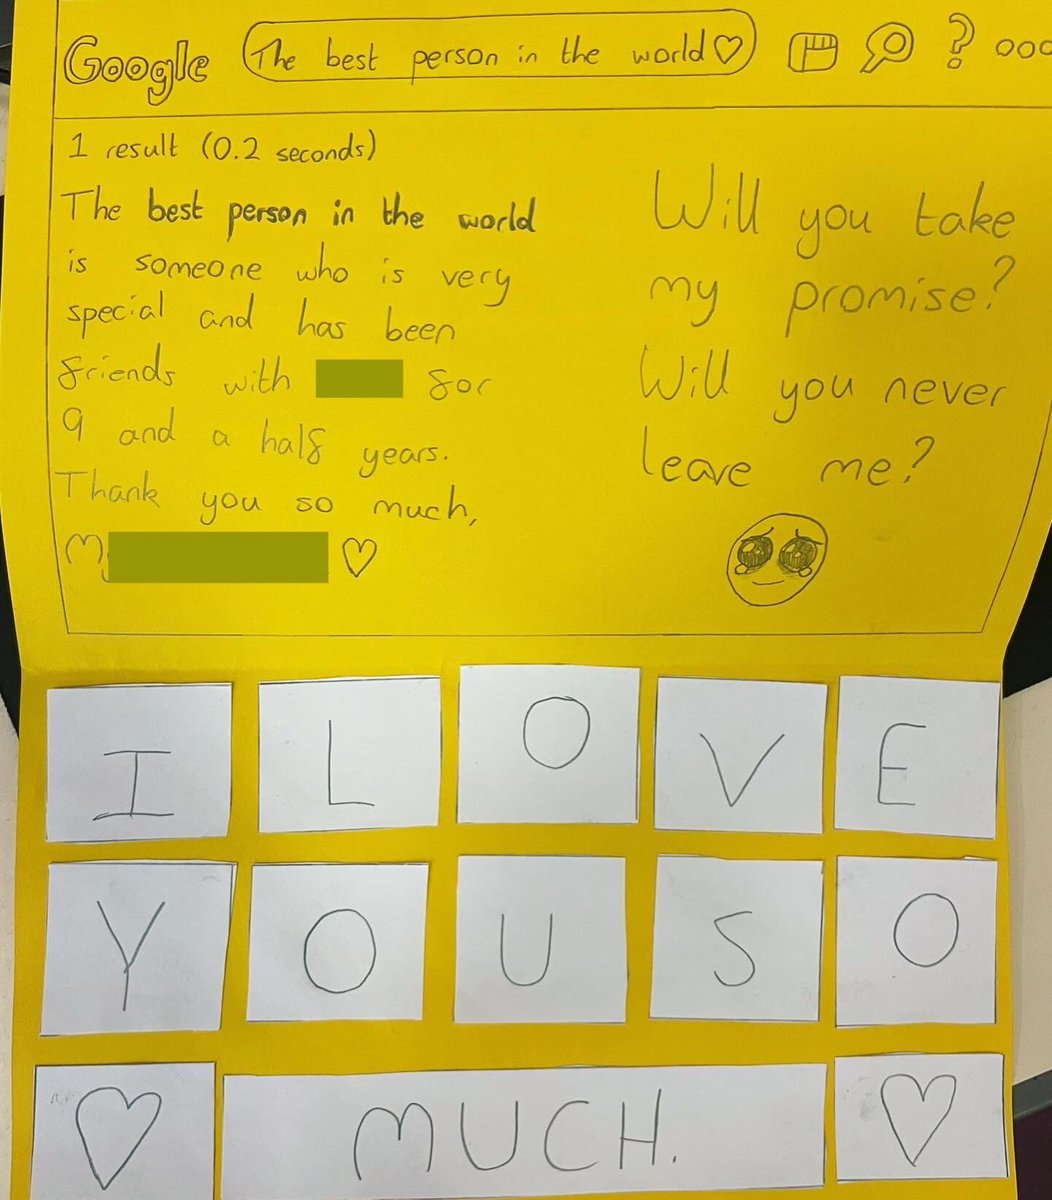 Google The best person in the world♡ ? ooo
1 result (0.2 seconds)
The best person in the world
is someone who is very
special and has been
friends with for
9 and a half years.
Thank you so much,
♡
Will you take
my promise?
Will you never
leave me?
I L O V E
Y O U S O
♡ MUCH. ♡